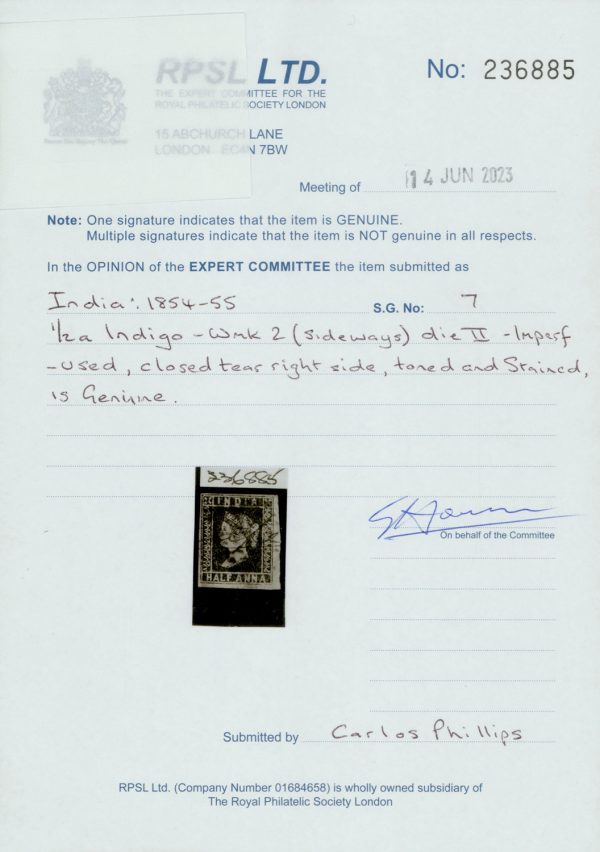 RPSL LTD.
No: 236885
THE EXPERT COMMITTEE FOR THE
ROYAL PHILATELIC SOCIETY LONDON
15 ABCHURCH LANE
LONDON EC4N 7BW
Meeting of 14 JUN 2023
Note: One signature indicates that the item is GENUINE.
Multiple signatures indicate that the item is NOT genuine in all respects.
In the OPINION of the EXPERT COMMITTEE the item submitted as
India: 1854-55 S.G. No: 7
1/2a Indigo - Wmk 2 (sideways) die II - Imperf
- used, closed tear right side, toned and Stained,
is Genuine.
236885
INDIA
HALF ANNA
On behalf of the Committee
Submitted by Carlos Phillips
RPSL Ltd. (Company Number 01684658) is wholly owned subsidiary of
The Royal Philatelic Society London